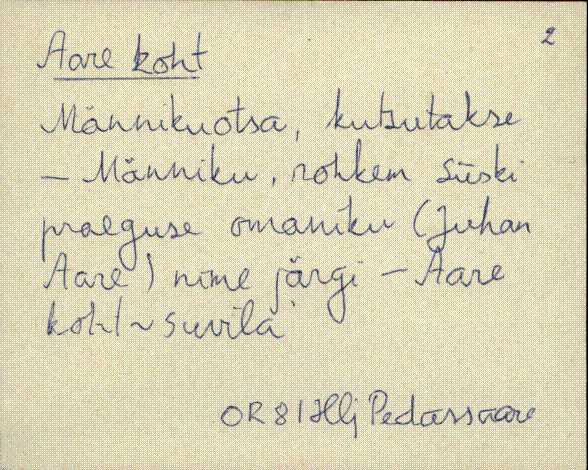 2
Aare koht
Männikuotsa, kutsutakse
– Männiku, rohkem siiski
praeguse omaniku (Juhan
Aare) nime järgi – Aare
koht ~ suvila
OR 81 Hlj Pedassaare